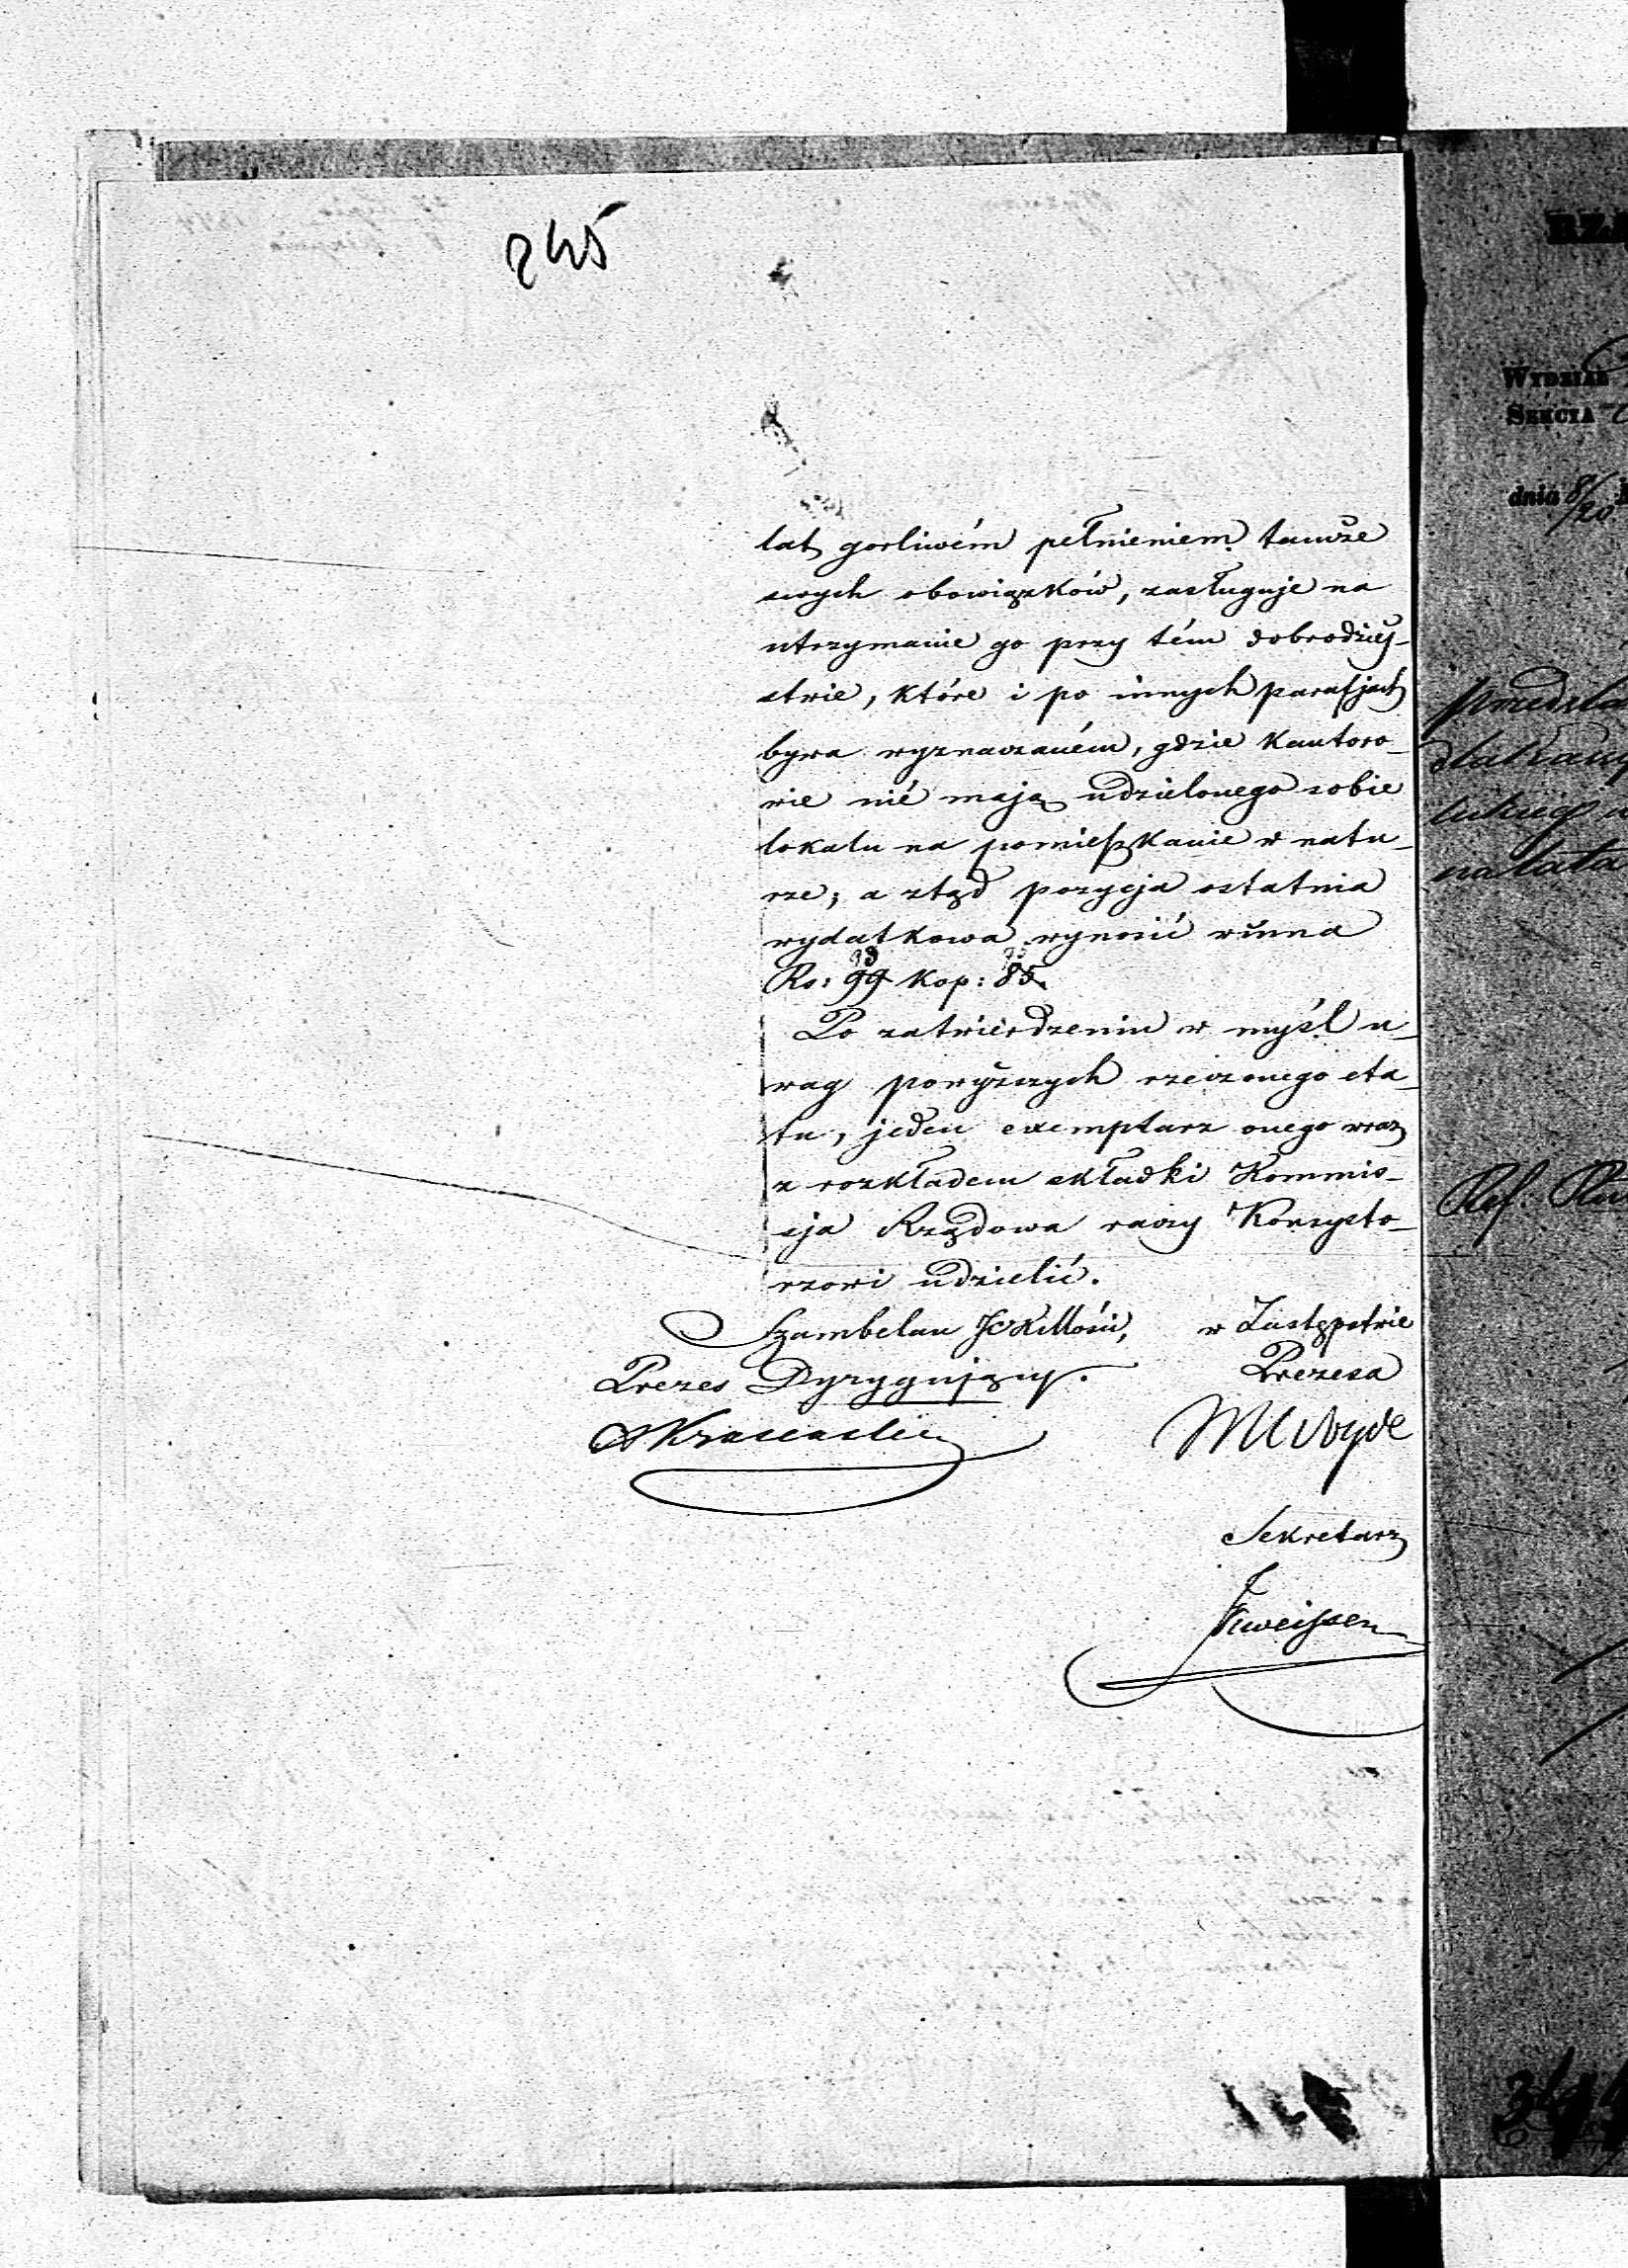 245
lat gorliwém pełnieniem tamże
swych obowiązków, zasługuje na
utrzymanie go przy tém dobrodziej-
stwie, które i po innych parafjach
bywa wyznaczaném, gdzie Kantoro-
wie nié mają udzielonego sobie
lokalu na pomieszkanie w natu-
rze; a ztąd pozycja ostatnia
wydatkowa wynosić winna
Rs: 99 Kop: 85.
Po zatwierdzeniu w myśl u-
wag powyższych rzeczonego eta-
tu, jeden exemplarz onego wraz
z rozkładem składki Kommis-
sja Rządowa raczy Konsysto-
rzowi udzielić.
Szambelan JCKMości, w Zastępstwie
Prezes Dyrygujący. Prezesa
Sekretarz
WYDZIAŁ
SEKCYA
dnia 8/20
na lata